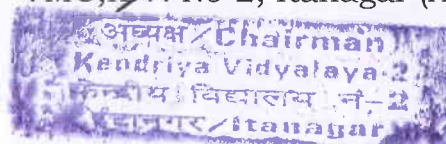 No 2, Itanagar (
अध्यक्ष/Chairman
Kendriya Vidyalaya-2
केन्द्रीय विद्यालय नं-2
ईटानगर/Itanagar